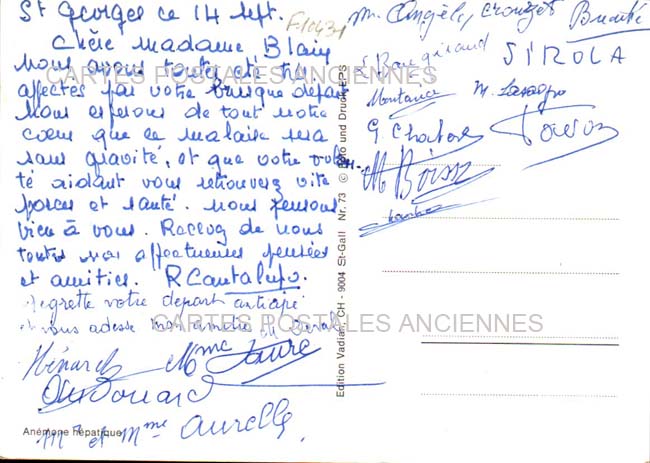 St Georges ce 14 sept.
Chère Madame Blain
nous avons toutes été très
affectés par votre brusque départ
Nous espérons de tout notre
cœur que ce malaise sera
sans gravité, et que votre volon-
té aidant vous retrouverez vite
forces et santé. nous pensons
bien à vous. Recevez de nous
toutes nos affectueuses pensées
et amitiés. R Cantalupo.
regrette votre départ anticipé
et vous adresse mon amitié
Hénard Mme Faure
Mr et Mme Aurelle
Anémone hépatique
Edition Vadian, CH - 9004 St-Gall Nr. 73 © Foto und Druck EPS
m. Angèle, Crouzet
SIROLA
Montance M.
G Chabore
M Boissz
CARTES POSTALES ANCIENNES
CARTES POSTALES ANCIENNES